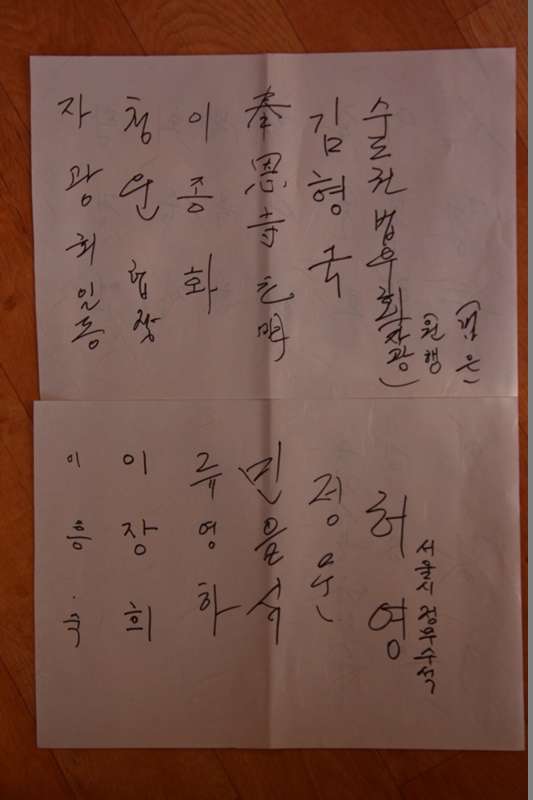 (법은
원행
자광)
술천법우회
김형국
奉恩寺 元明
이종화
청운 합장
자광회 일동
서울시 정무수석
허영
정우
민을식
류영하
이장희
이흥